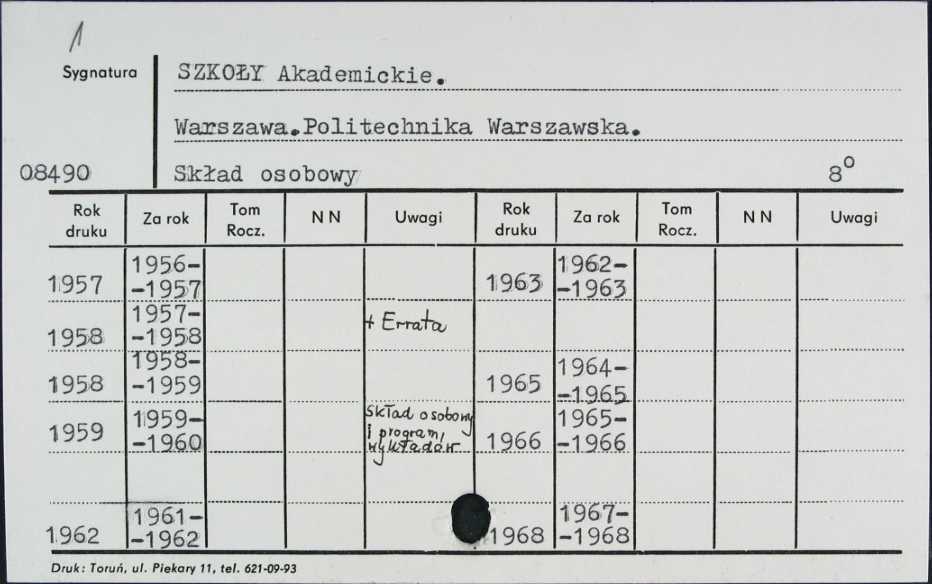 1
Sygnatura
SZKOŁY Akademickie.
Warszawa.Politechnika Warszawska.
08490 Skład osobowy 8°
Rok druku Za rok Tom Rocz. N N Uwagi Rok druku Za rok Tom Rocz. N N Uwagi
1957 1956-
-1957 1963 1962-
-1963
1958 1957-
-1958 + Errata
1958 1958-
-1959 1965 1964-
-1965
1959 1959-
-1960 skład osobowy
i program,
wykładów 1966 1965-
-1966
1962 1961-
-1962 1968 1967-
-1968
Druk: Toruń, ul. Piekary 11, tel. 621-09-93